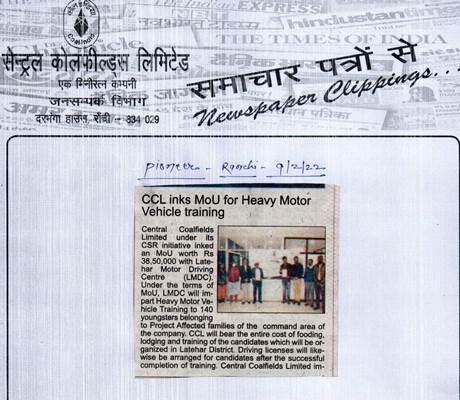 EXPRESS
hindustantimes
THE TIMES OF INDIA
सेन्ट्रल कोलफील्ड्स लिमिटेड
एक मिनीरत्न कम्पनी
जनसम्पर्क विभाग
दरभंगा हाउस, राँची - 834 029
समाचार पत्रों से
Newspaper Clippings...
Pioneer - Ranchi - 9/2/22
CCL inks MoU for Heavy Motor
Vehicle training
Central Coalfields
Limited under its
CSR initiative inked
an MoU worth Rs
38,50,000 with Late-
har Motor Driving
Centre (LMDC).
Under the terms of
MoU, LMDC will im-
part Heavy Motor Ve-
hicle Training to 140
youngsters belonging
to Project Affected families of the command area of
the company. CCL will bear the entire cost of fooding,
lodging and training of the candidates which will be or-
ganized in Latehar District. Driving licenses will like-
wise be arranged for candidates after the successful
completion of training. Central Coalfields Limited im-